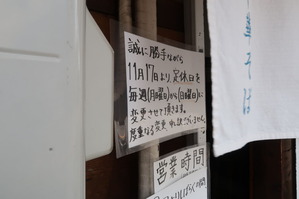 誠に勝手ながら
11月17日より、定休日を
毎週(月曜日)から(日曜日)に
変更させて頂きます。
度重なる変更申し訳ございません。
営業時間